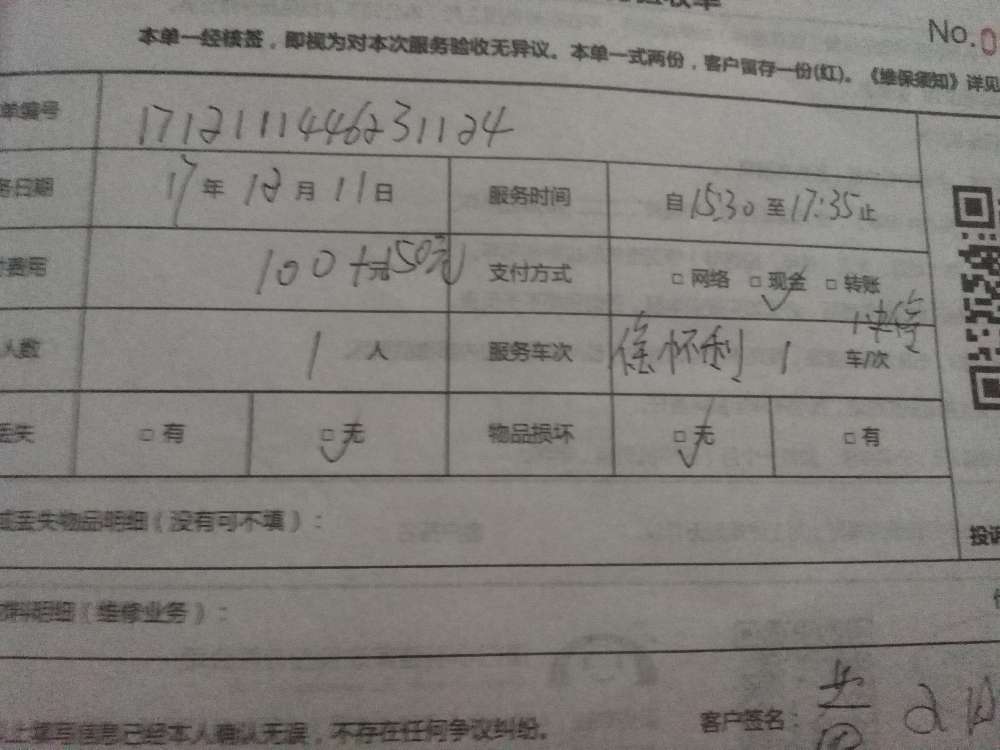 收单
No.0
本单一经核签，即视为对本次服务验收无异议。本单一式两份，客户留存一份(红)。《维保须知》详见
单编号 1712111446231124
务日期 17年 12月 11日 服务时间 自15:30至17:35止
费用 100+元150元 支付方式 □ 网络 □ 现金 □ 转账
人数 1 人 服务车次 1 车/次
丢失 □ 有 □ 无 物品损坏 □ 无 □ 有
或丢失物品明细（没有可不填）：
投诉
材料明细（维修业务）：
上填写信息已经本人确认无误，不存在任何争议纠纷。 客户签名：